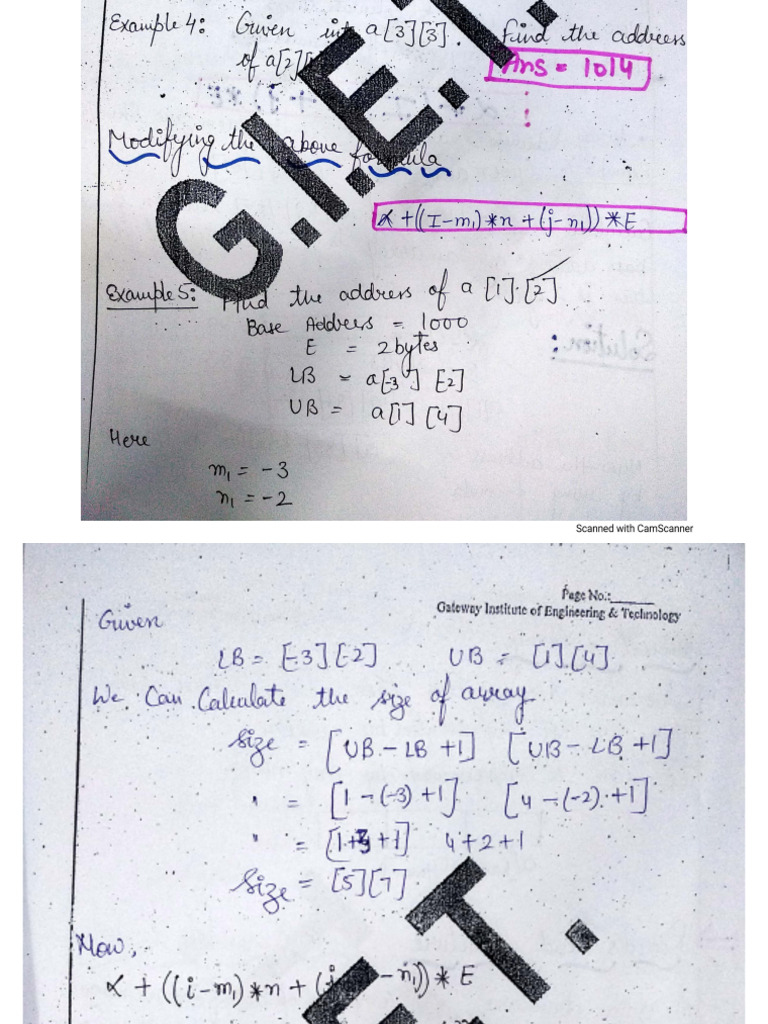 Example 4: Given int a[3][3]. Find the address
of a[2][
Ans = 1014
Modifying the above formula
α + ((I-m₁) * n + (j-n₁)) * E
Example 5: Find the address of a [1].[2]
Base Address = 1000
E = 2 bytes
LB = a[-3] [-2]
UB = a[1] [4]
Here
m₁ = -3
n₁ = -2
G.I.E.T.
Scanned with CamScanner
Page No.:______
Gateway Institute of Engineering & Technology
Given
LB = [-3].[-2] UB = [1].[4]
We Can Calculate the size of array
Size = [UB - LB +1] [UB - LB +1]
" = [1 - (-3) +1] [4 - (-2) +1]
" = [1+3+1] 4+2+1
Size = [5][7]
Now,
α + ((i-m₁) * n + (j - n₁)) * E